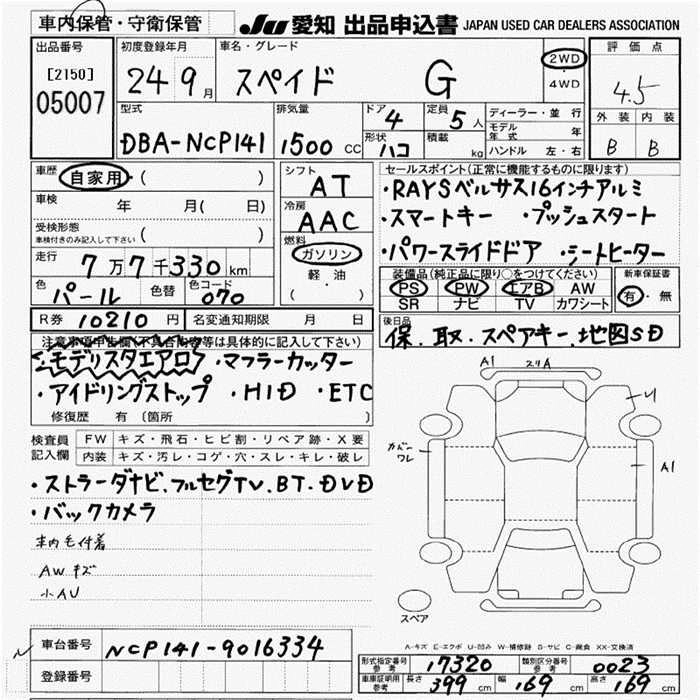 車内保管・守衛保管
JU 愛知 出品申込書 JAPAN USED CAR DEALERS ASSOCIATION
出品番号
[2150]
05007
初度登録年月
24 9月
車名・グレード
スペイド G
2WD
・
4WD
評価点
4.5
外装 内装
B B
型式
DBA-NCP141
排気量
1500 CC
ドア
4
形状
ハコ
定員
5人
積載
kg
ディーラー・並行
モデル年式 年
ハンドル 左・右
車歴
自家用・( )
車検 年 月( 日)
受検形態
車検付きのみ記入して下さい ( )
走行
7万7千330km
色
パール
色替
色コード
070
シフト
AT
冷房
AAC
燃料
ガソリン
・
軽・油
( )
セールスポイント(正常に機能するものに限ります)
・RAYSベルサス16インチアルミ
・スマートキー ・プッシュスタート
・パワースライドドア ・シートヒーター
装備品(純正品に限り○をつけてください)
PS PW エアB AW
SR ナビ TV カワシート
新車保証書
有・無
R券 10210円
名変通知期限 月 日
後日品
保.取.スペアキー.地図SD
注意事項申告欄(不具合箇所等は具体的に記入して下さい)
モデリスタエアロ ・マフラーカッター
・アイドリングストップ ・HID ・ETC
修復歴 有(箇所 )
検査員
記入欄
FW キズ・飛石・ヒビ割・リペア跡・X要
内装 キズ・汚レ・コゲ・穴・スレ・キレ・破レ
・ストラーダナビ.フルセグTV.BT.DVD
・バックカメラ
車内毛付着
AWキズ
小AU
A1
スリA
カバー
ワレ
A1
スペア
A-キズ E-エクボ U-凹み W-補修跡 S-サビ C-腐食 XX-交換済
車台番号 NCP141-9016334
登録番号
型式指定番号
参考
17320
類別区分番号
参考
0023
車庫証明用
参考
長さ 399cm 幅 169cm 高さ 169cm